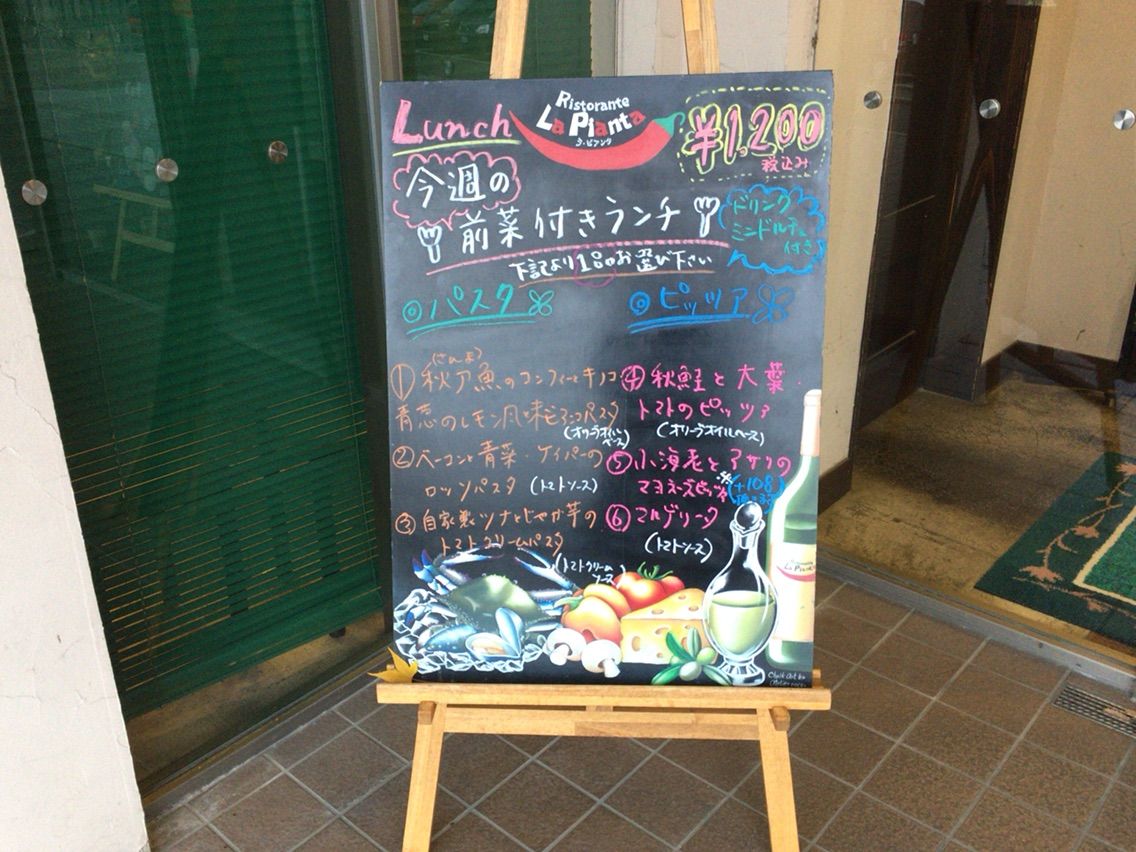 Lunch
Ristorante
La Pianta
ラ・ピアンタ
¥1,200
税込み
今週の
前菜付きランチ
ドリンク
ミニドルチェ
付き
下記より1品お選び下さい
◎パスタ
◎ピッツァ
(さんま)
① 秋刀魚のコンフィーとキノコ
青葱のレモン風味 パスタ
(オリーブオイル
ベース)
② ベーコンと青菜・ケイパーの
ロッソパスタ (トマトソース)
③ 自家製ツナとじゃが芋の
トマトクリームパスタ
(トマトクリーム
ソース)
④ 秋鮭と大葉
トマトのピッツァ
(オリーブオイルベース)
⑤ 小海老とアサリの
マヨネーズピッツァ
(+108
⑥ マルゲリータ
(トマトソース)
Ristorante
La Pianta
Chalk Art by